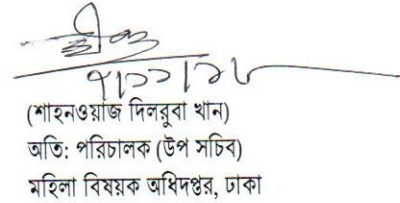 (শাহনওয়াজ দিলরুবা খান)
অতি: পরিচালক (উপ সচিব)
মহিলা বিষয়ক অধিদপ্তর, ঢাকা